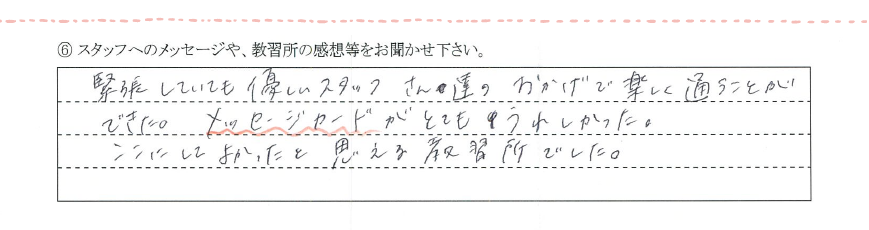 ⑥ スタッフへのメッセージや、教習所の感想等をお聞かせ下さい。
緊張していても優しいスタッフさん達のおかげで楽しく通うことが
できた。メッセージカードがとてもうれしかった。
ここにしてよかったと思える教習所でした。